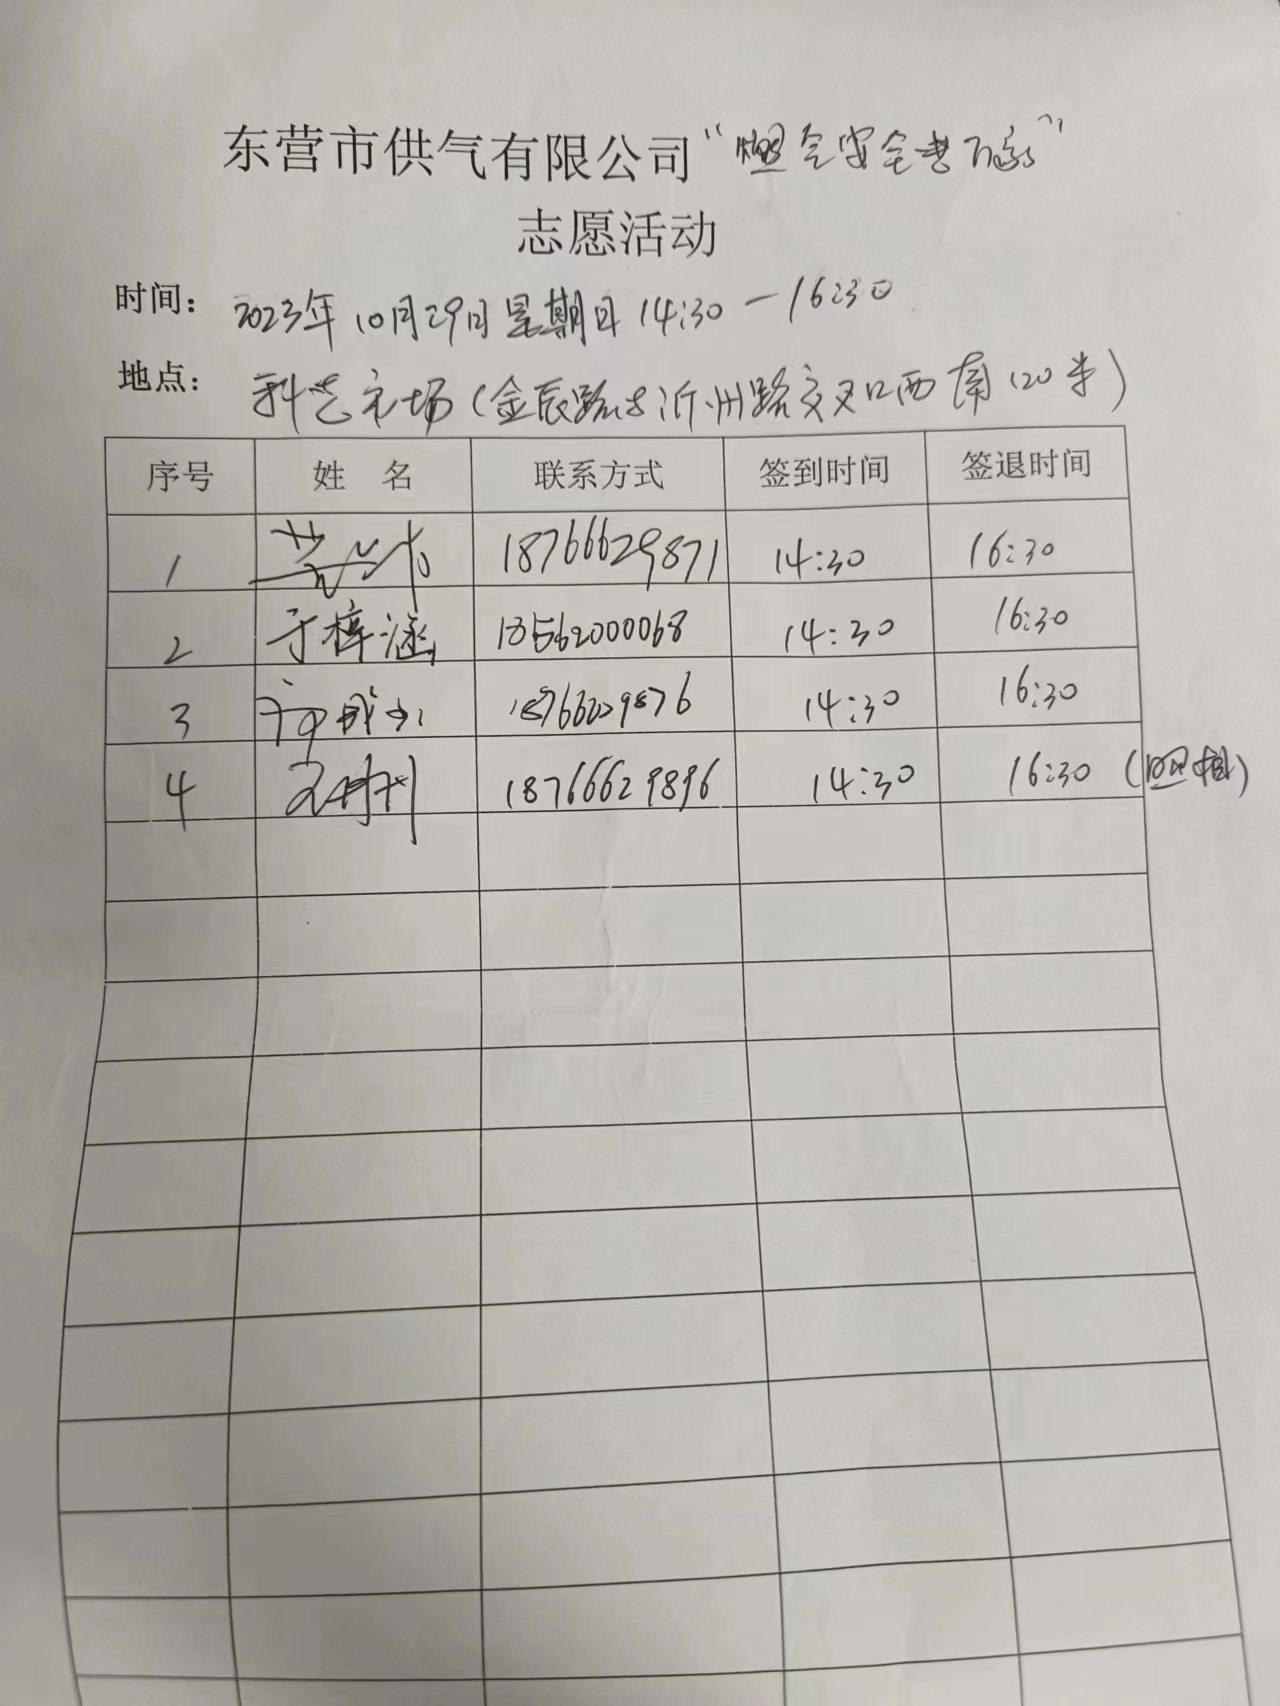 东营市供气有限公司“燃气安全进万家”
志愿活动
时间： 2023年10月29日星期日14:30—16:30
地点： 科艺市场（金辰路与沂州路交叉口西南120米）
序号 姓 名 联系方式 签到时间 签退时间
1 18766629871 14:30 16:30
2 于梓涵 18562000068 14:30 16:30
3 18766629876 14:30 16:30
4 18766629896 14:30 16:30 (照相)